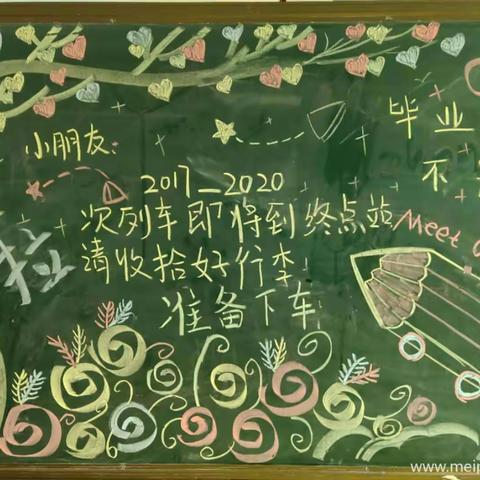 小朋友:
2017—2020
次列车即将到终点站
请收拾好行李!
准备下车
毕业
不
Meet
www.meip